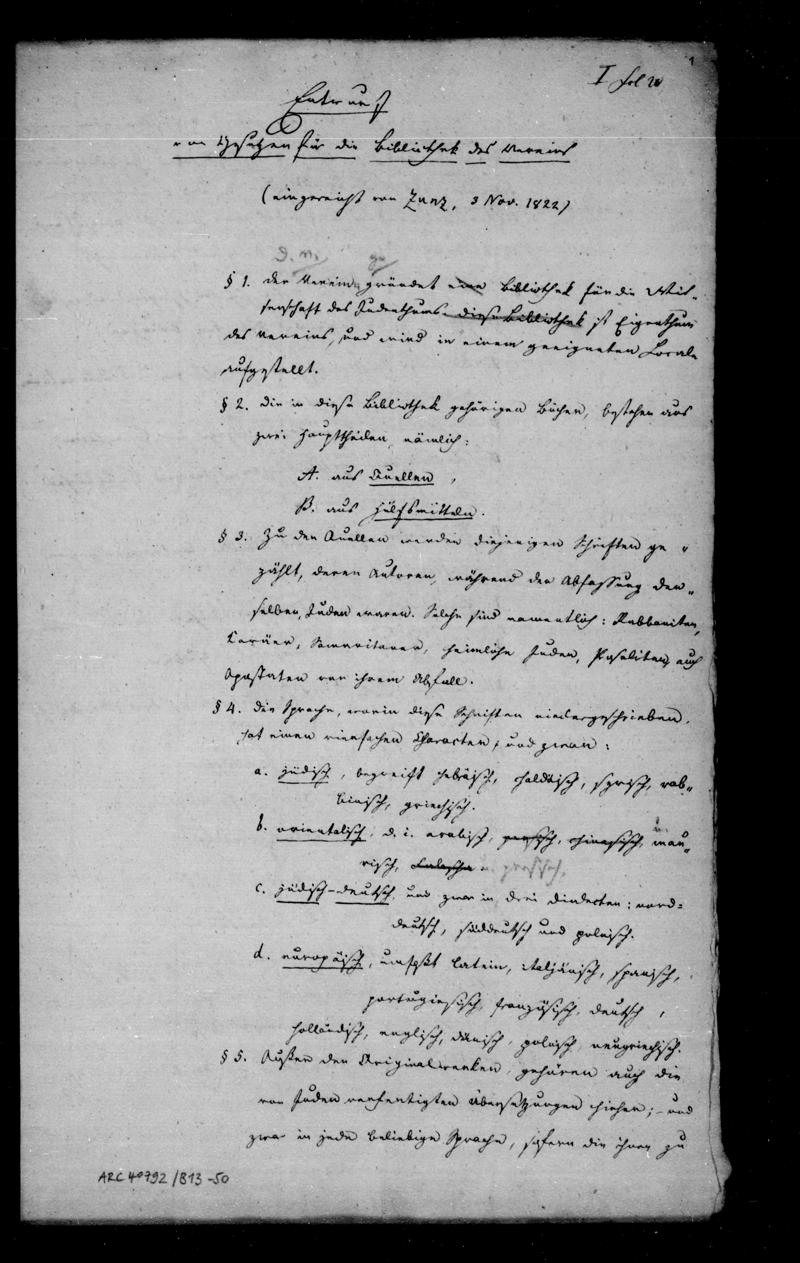 1
I fol 20
Entwurf
von Gesetzen für die Bibliothek des Vereins
(eingereicht von Zunz, 3 Nov. 1822)
D. V.
§ 1. der Verein gründet eine Bibliothek für die Wis-
senschaft des Judenthums. diese Bibliothek ist Eigenthum
des Vereins, und wird in einem geeigneten Locale
aufgestellt.
§ 2. die in diese Bibliothek gehörigen Bücher, bestehen aus
zwei Haupttheilen, nämlich:
A. aus Quellen,
B. aus Hülfsmitteln.
§ 3. Zu den Quellen werden diejenigen Schriften ge-
zählt, deren Autoren, während der Abfassung der-
selben, Juden waren. Solche sind namentlich: Rabbaniten,
Karäer, Samaritaner, heimliche Juden, Proseliten, auch
Apostaten vor ihrem Abfall.
§ 4. Die Sprache, worin diese Schriften niedergeschrieben,
hat einen vierfachen Character; und zwar:
a. jüdisch, begreift hebräisch, chaldäisch, syrisch, rab-
binisch, griechisch.
b. orientalisch, d. i. arabisch, persisch, chinesisch, mau-
risch, Falascha u. persisch.
c. jüdisch-deutsch, und zwar in drei Dialecten: nord-
deutsch, süddeutsch und polnisch.
d. europäisch, umfaßt latein, italiänisch, spanisch,
portugiesisch, französisch, deutsch,
holländisch, englisch, dänisch, polnisch, neugriechisch.
§ 5. Außer den Originalwerken, gehören auch die
von Juden verfertigten Übersetzungen hieher; - und
zwar in jede beliebige Sprache, sofern die ihnen zu
ARC 4°792/B13-50